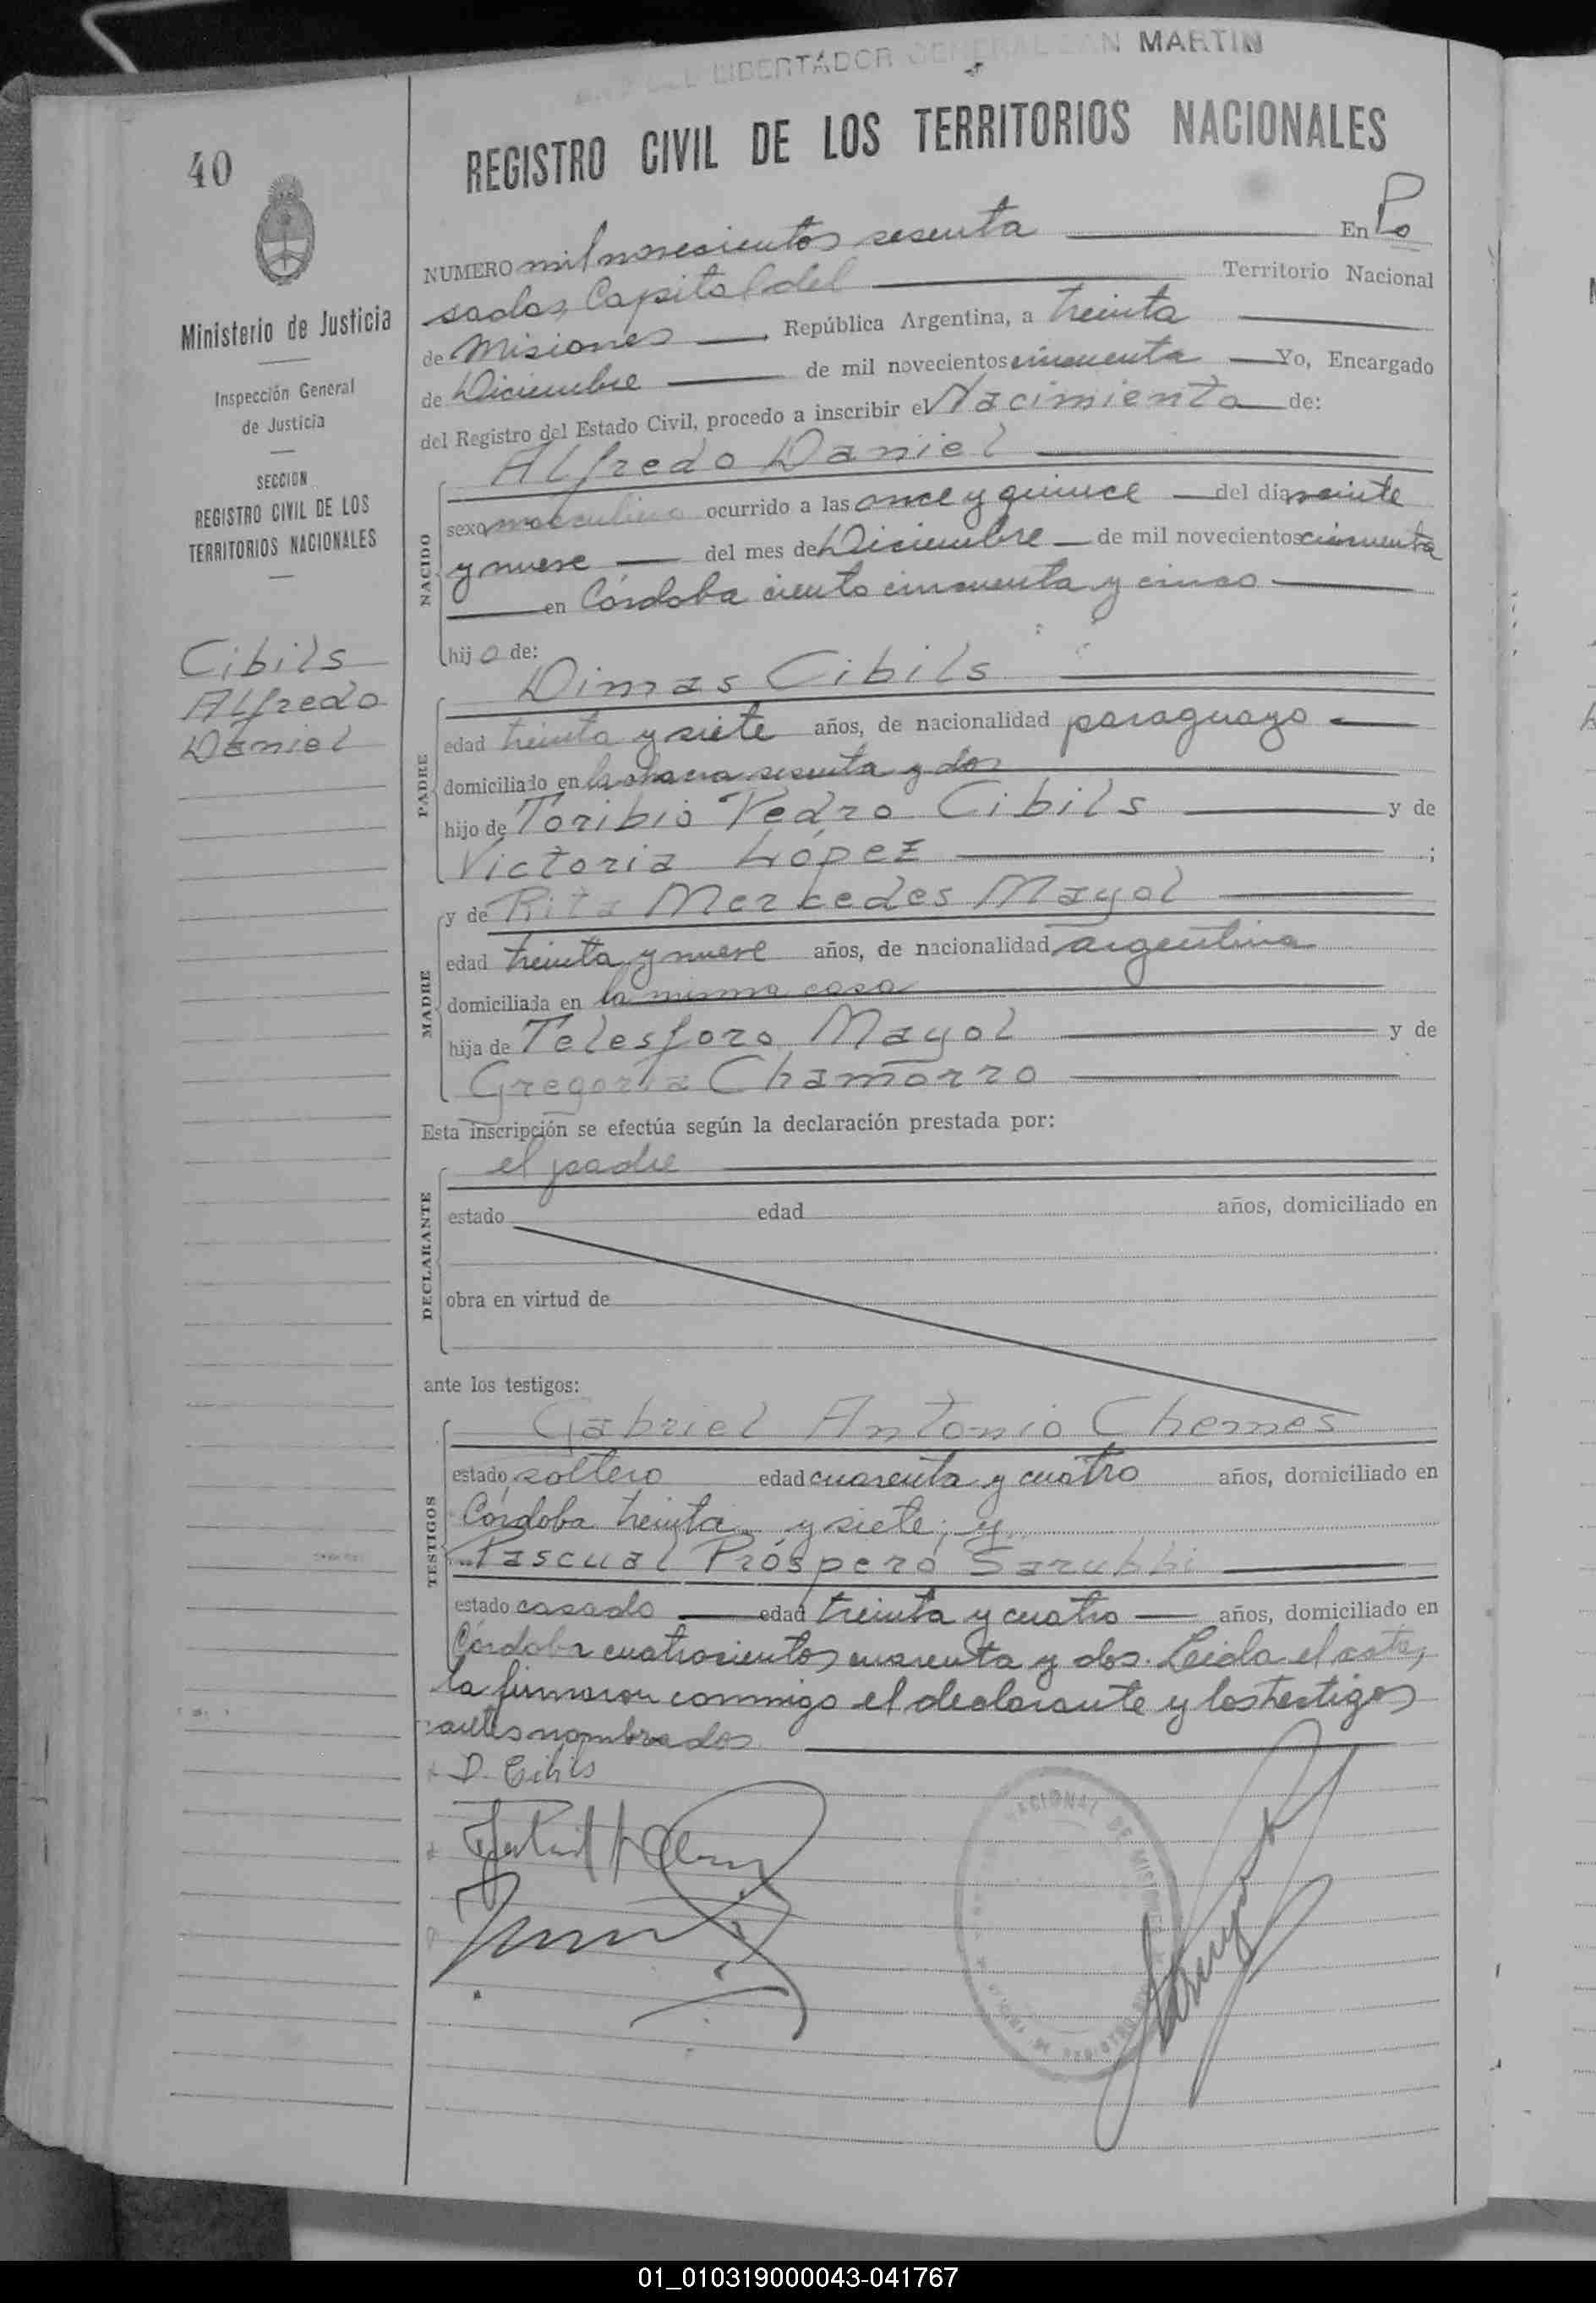 LIBERTADOR GENERAL SAN MARTIN
REGISTRO CIVIL DE LOS TERRITORIOS NACIONALES
40
Ministerio de Justicia
Inspección General
de Justicia
SECCION
REGISTRO CIVIL DE LOS
TERRITORIOS NACIONALES
Cibils
Alfredo
Daniel
NUMERO mil novecientos sesenta En Po
sadas, Capital del Territorio Nacional
de Misiones República Argentina, a treinta
de Diciembre de mil novecientos cincuenta Yo, Encargado
del Registro del Estado Civil, procedo a inscribir el Nacimiento de:
NACIDO
Alfredo Daniel
sexo masculino ocurrido a las once y quince del día veinte
y nueve del mes de Diciembre de mil novecientos cincuenta
en Córdoba ciento cincuenta y cinco
hijo de:
PADRE
Dimas Cibils
edad treinta y siete años, de nacionalidad paraguayo
domiciliado en la chacra sesenta y dos
hijo de Toribio Pedro Cibils y de
Victoria López ;
MADRE
y de Rita Mercedes Mayol
edad treinta y nueve años, de nacionalidad argentina
domiciliada en la misma casa
hija de Telesforo Mayol y de
Gregoria Chamorro
Esta inscripción se efectúa según la declaración prestada por:
DECLARANTE
el padre
estado edad años, domiciliado en
obra en virtud de
ante los testigos:
TESTIGOS
Gabriel Antonio Chemes
estado soltero edad cuarenta y cuatro años, domiciliado en
Córdoba treinta y siete; y
Pascual Próspero Sarubbi
estado casado edad treinta y cuatro años, domiciliado en
Córdoba cuatrocientos cuarenta y dos. Leida el acta,
la firmaron conmigo el declarante y los testigos
antes nombrados
D. Cibils
NACIONAL DE MISIONES
01_010319000043-041767